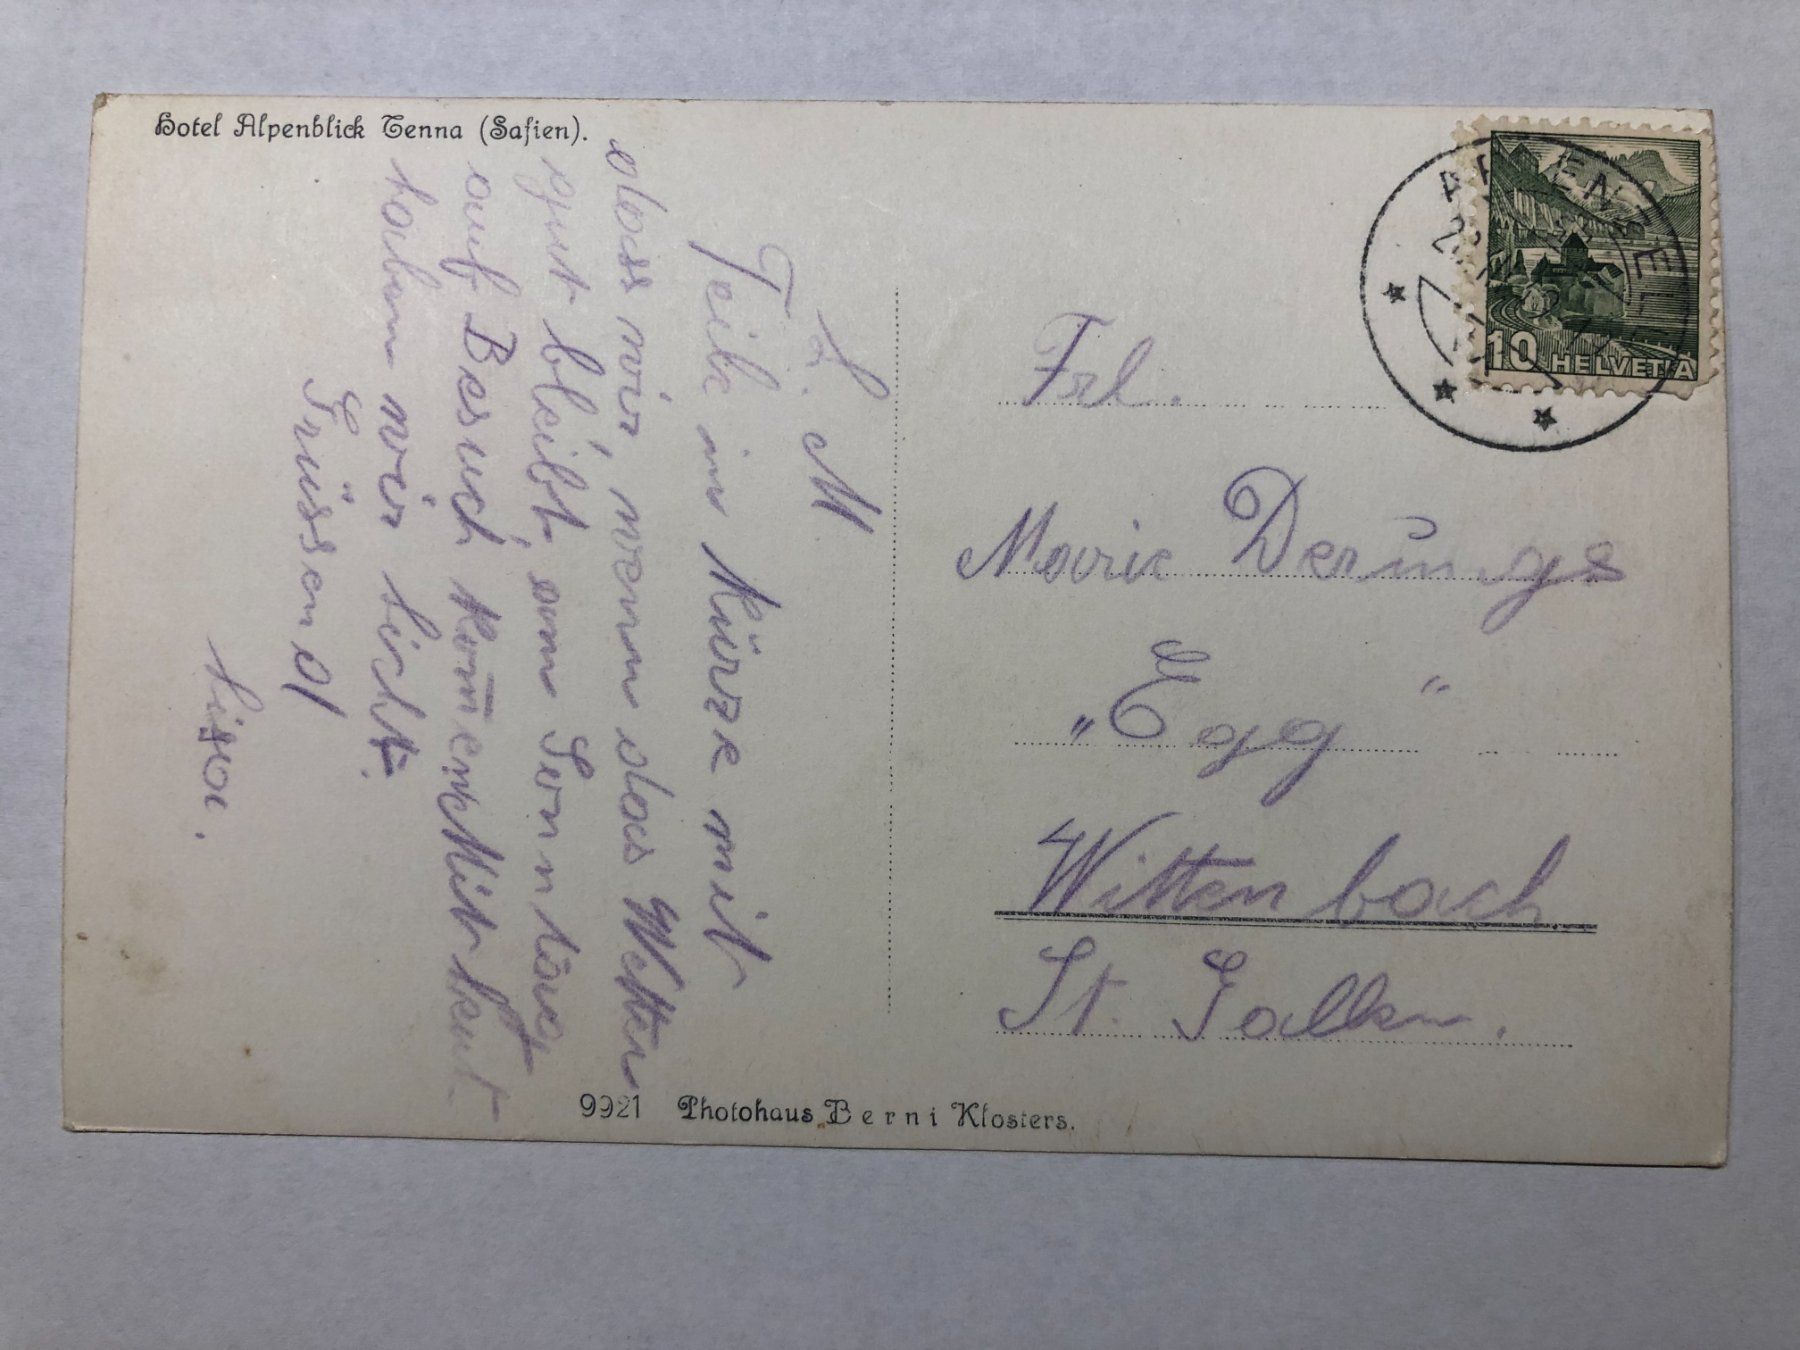 Hotel Alpenblick Tenna (Safien).
L. M
Teile in Kürze mit
dass wir, wenn das Wetter
gut bleibt, am Sonntag
auf Besuch kom̅en. Mitr
haben wir Licht.
Grüssend
Lisa.
Frl.
Marie Derungs
„Egg"
Wittenbach
St. Gallen.
APPENZELL
10 HELVETIA
9921 Photohaus Berni Klosters.